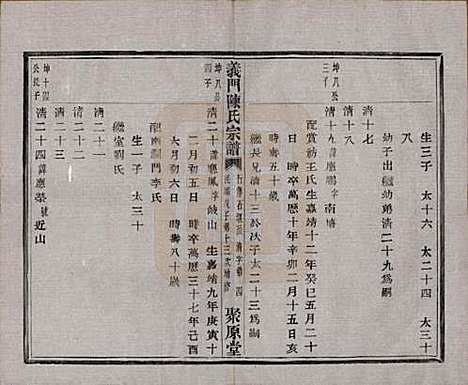 生三子 太十六 太二十四 太三十
八
幼子出繼幼弟清二十九為嗣
清十七
清十八
坤九公三子
清十九諱應鵬字南塘
配賞紡王氏生嘉靖十二年癸巳五月二十
日 時卒萬曆十年辛卯二月十五日亥
時壽五十歲
繼長兄清十三於次子太二十三為嗣
義門陳氏宗譜
聚原堂
坤九公四子
清二十諱應鳳字岐山 生嘉靖九年庚寅十
二月初六日 時卒萬曆三十七年己酉
六月初六日 時壽八十歲
配南湖門李氏
繼室劉氏
生一子 太三十
清二十一
清二十二
清二十三
坤十四公長子
清二十四諱應榮號近山